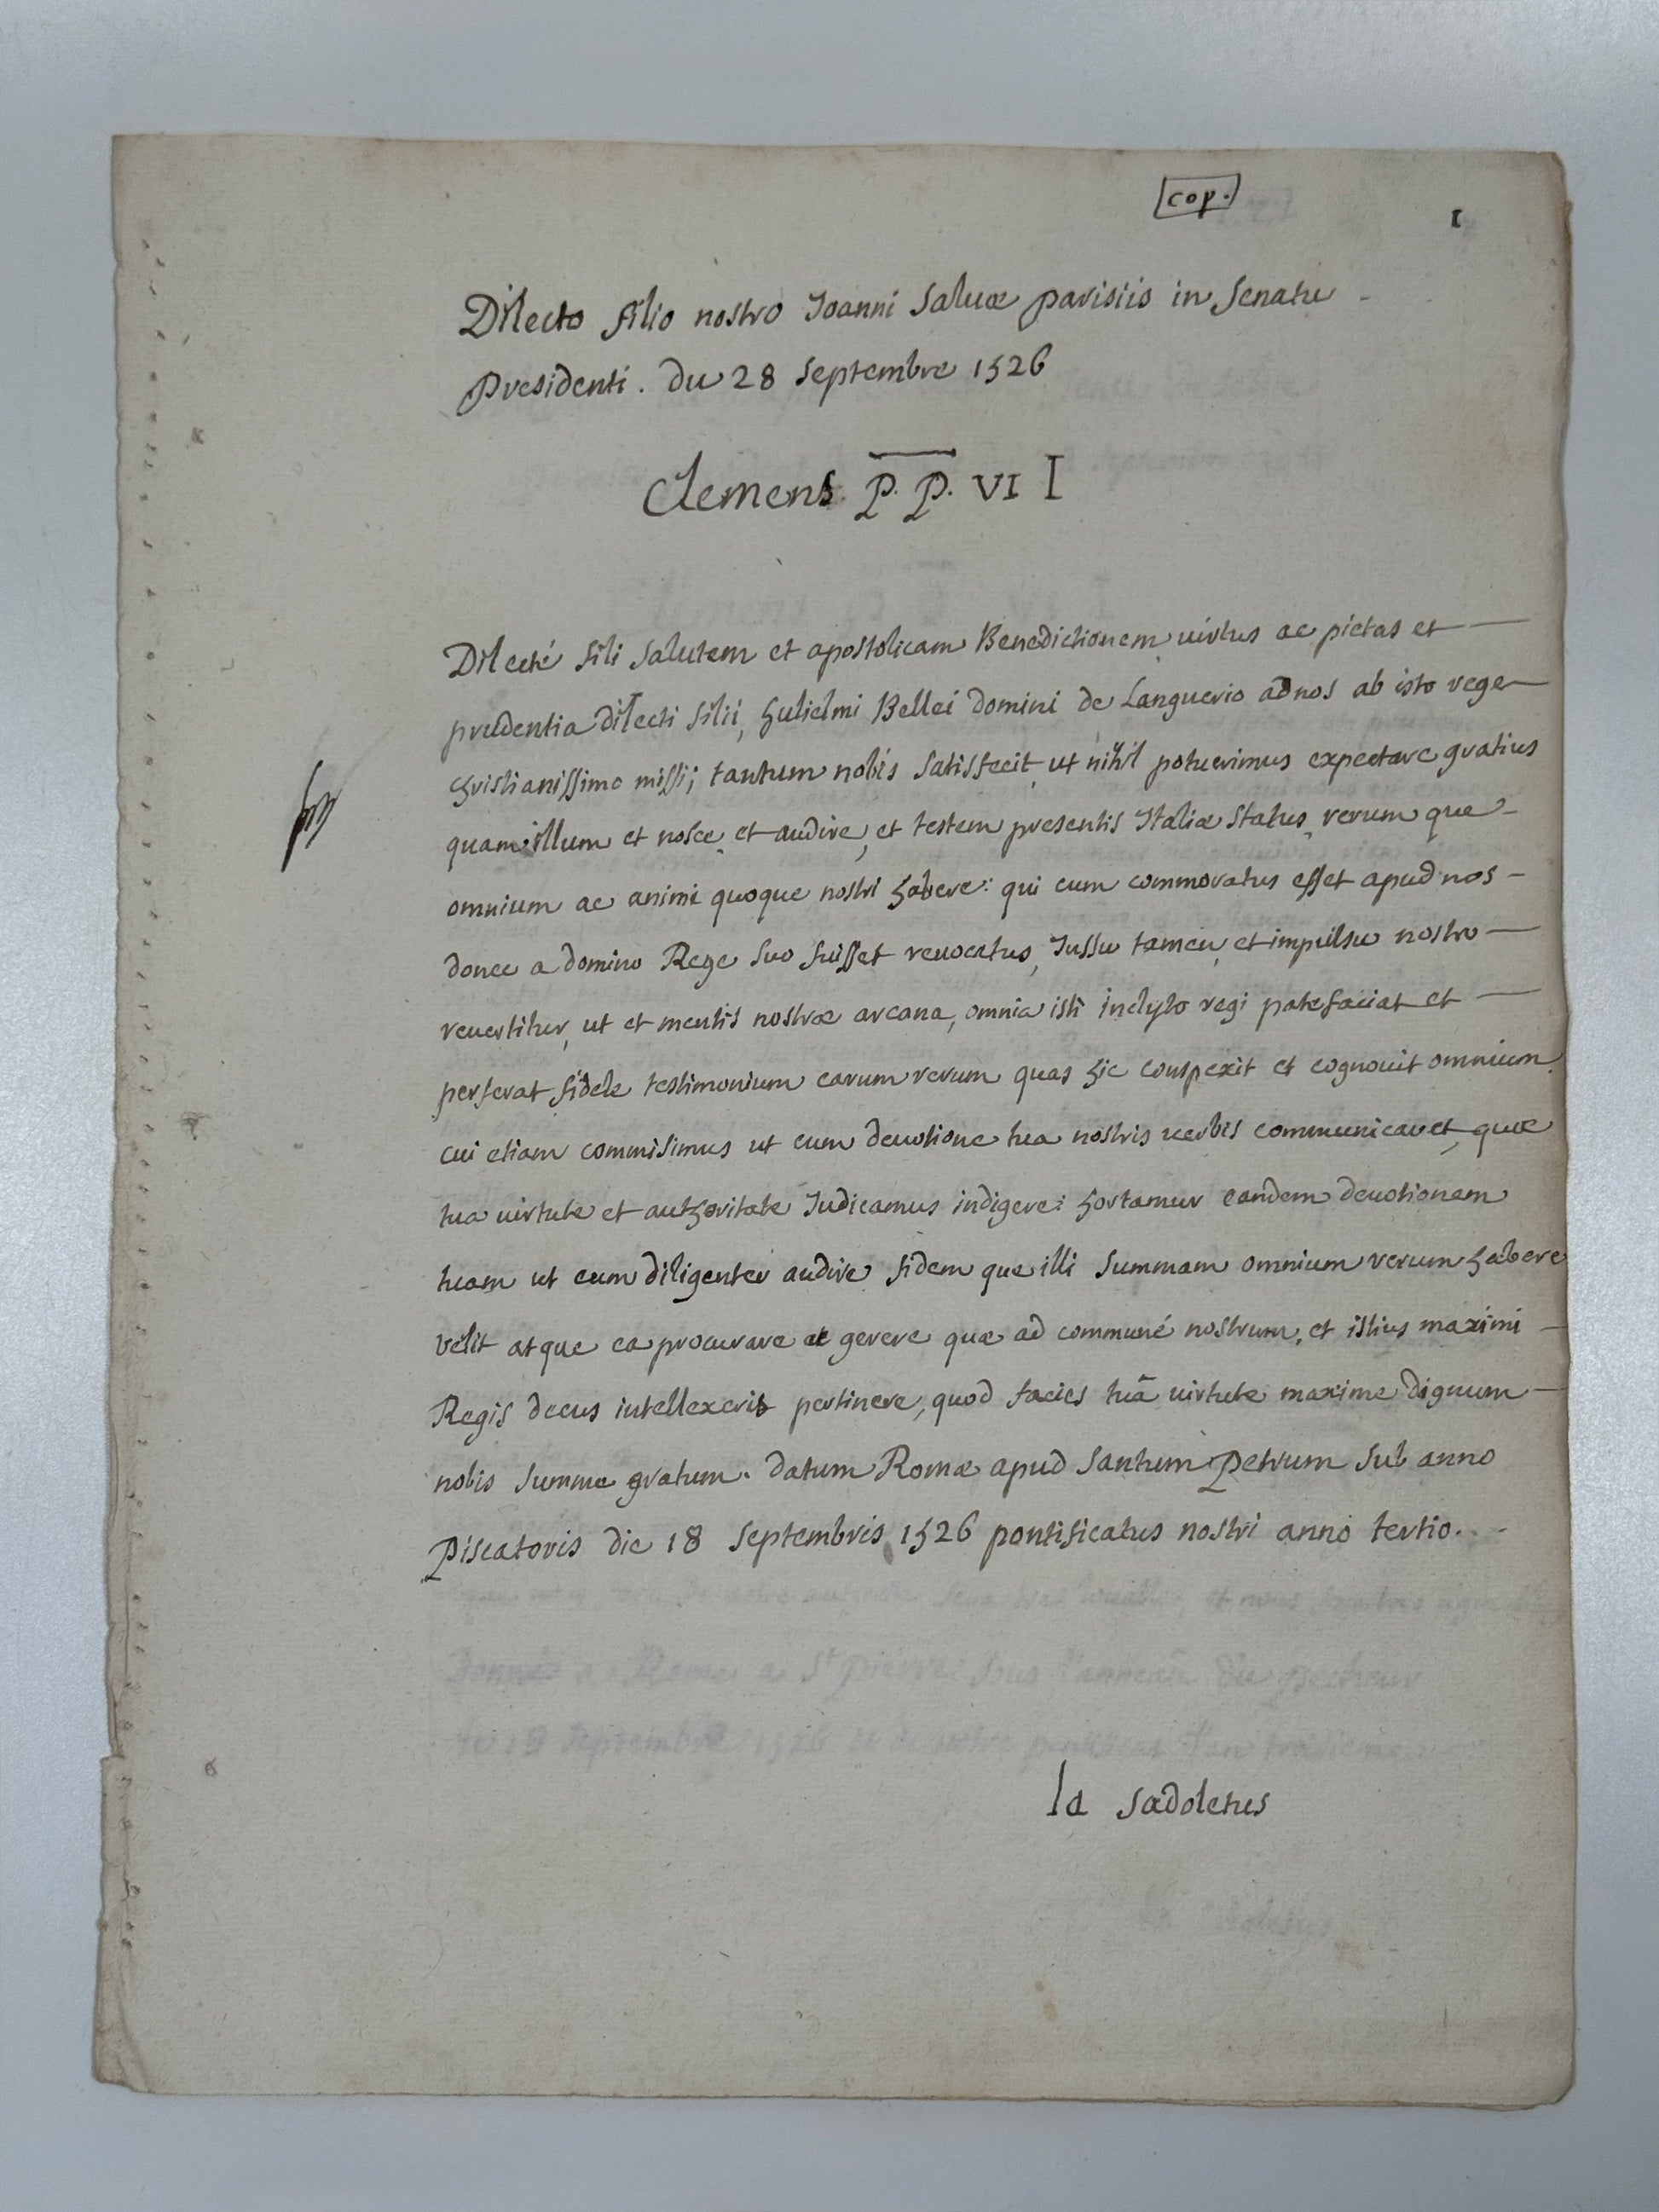 cop.
1
Dilecto filio nostro Joanni Saluæ parisiis in Senatu
Presidenti. du 28 Septembre 1526
Clemens P. P. VII
Dilecté fili salutem et apostolicam Benedictionem uirtus ac pietas et
prudentia dilecti filii, Gulielmi Bellei domini de Languerio ad nos ab isto rege
christianissimo missi; tantum nobis satisfecit ut nihil potuerimus expectare gratius
quam illum et nosce, et audire, et testem presentis Italiæ status, rerum que
omnium ac animi quoque nostri habere: qui cum commoratus esset apud nos
donec a domino Rege suo fuisset reuocatus, Jussu tamen, et impulsu nostro
reuertitur, ut et mentis nostræ arcana, omnia isti inclyto regi patefaciat et
perferat fidele testimonium earum rerum quas hic conspexit et cognouit omnium.
cui etiam commisimus ut cum deuotione tua nostris uerbis communicaret, quæ
tua uirtute et authoritate Judicamus indigere: hortamur eandem deuotionem
tuam ut eum diligenter audire fidem que illi summam omnium rerum habere
velit atque ea procurare et gerere quæ ad communé nostrum, et istius maximi
Regis decus intellexerit pertinere, quod facies tuâ uirtute maxime dignum
nobis summe gratum. datum Romæ apud Santum Petrum sub anno
Piscatoris die 18 Septembris 1526 pontificatus nostri anno tertio.
Ia Sadoletus